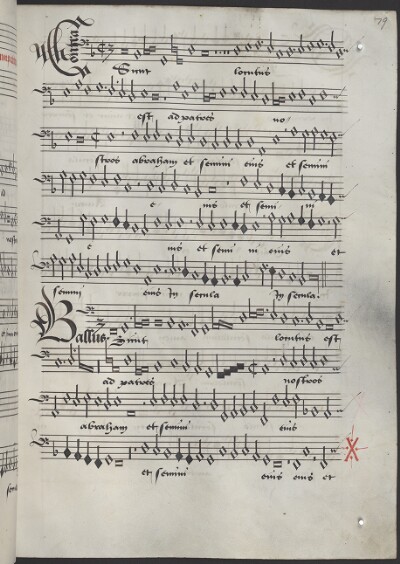 79
Contra
Sicut locutus
est ad patres no
stros abraham et semini eius et semini
e ius et semi ni
e ius et semi ni eius et
semini eius In secula In secula.
Bassus Sicut locutus est
ad patres nostros
abraham et semini eius
et semini eius eius et